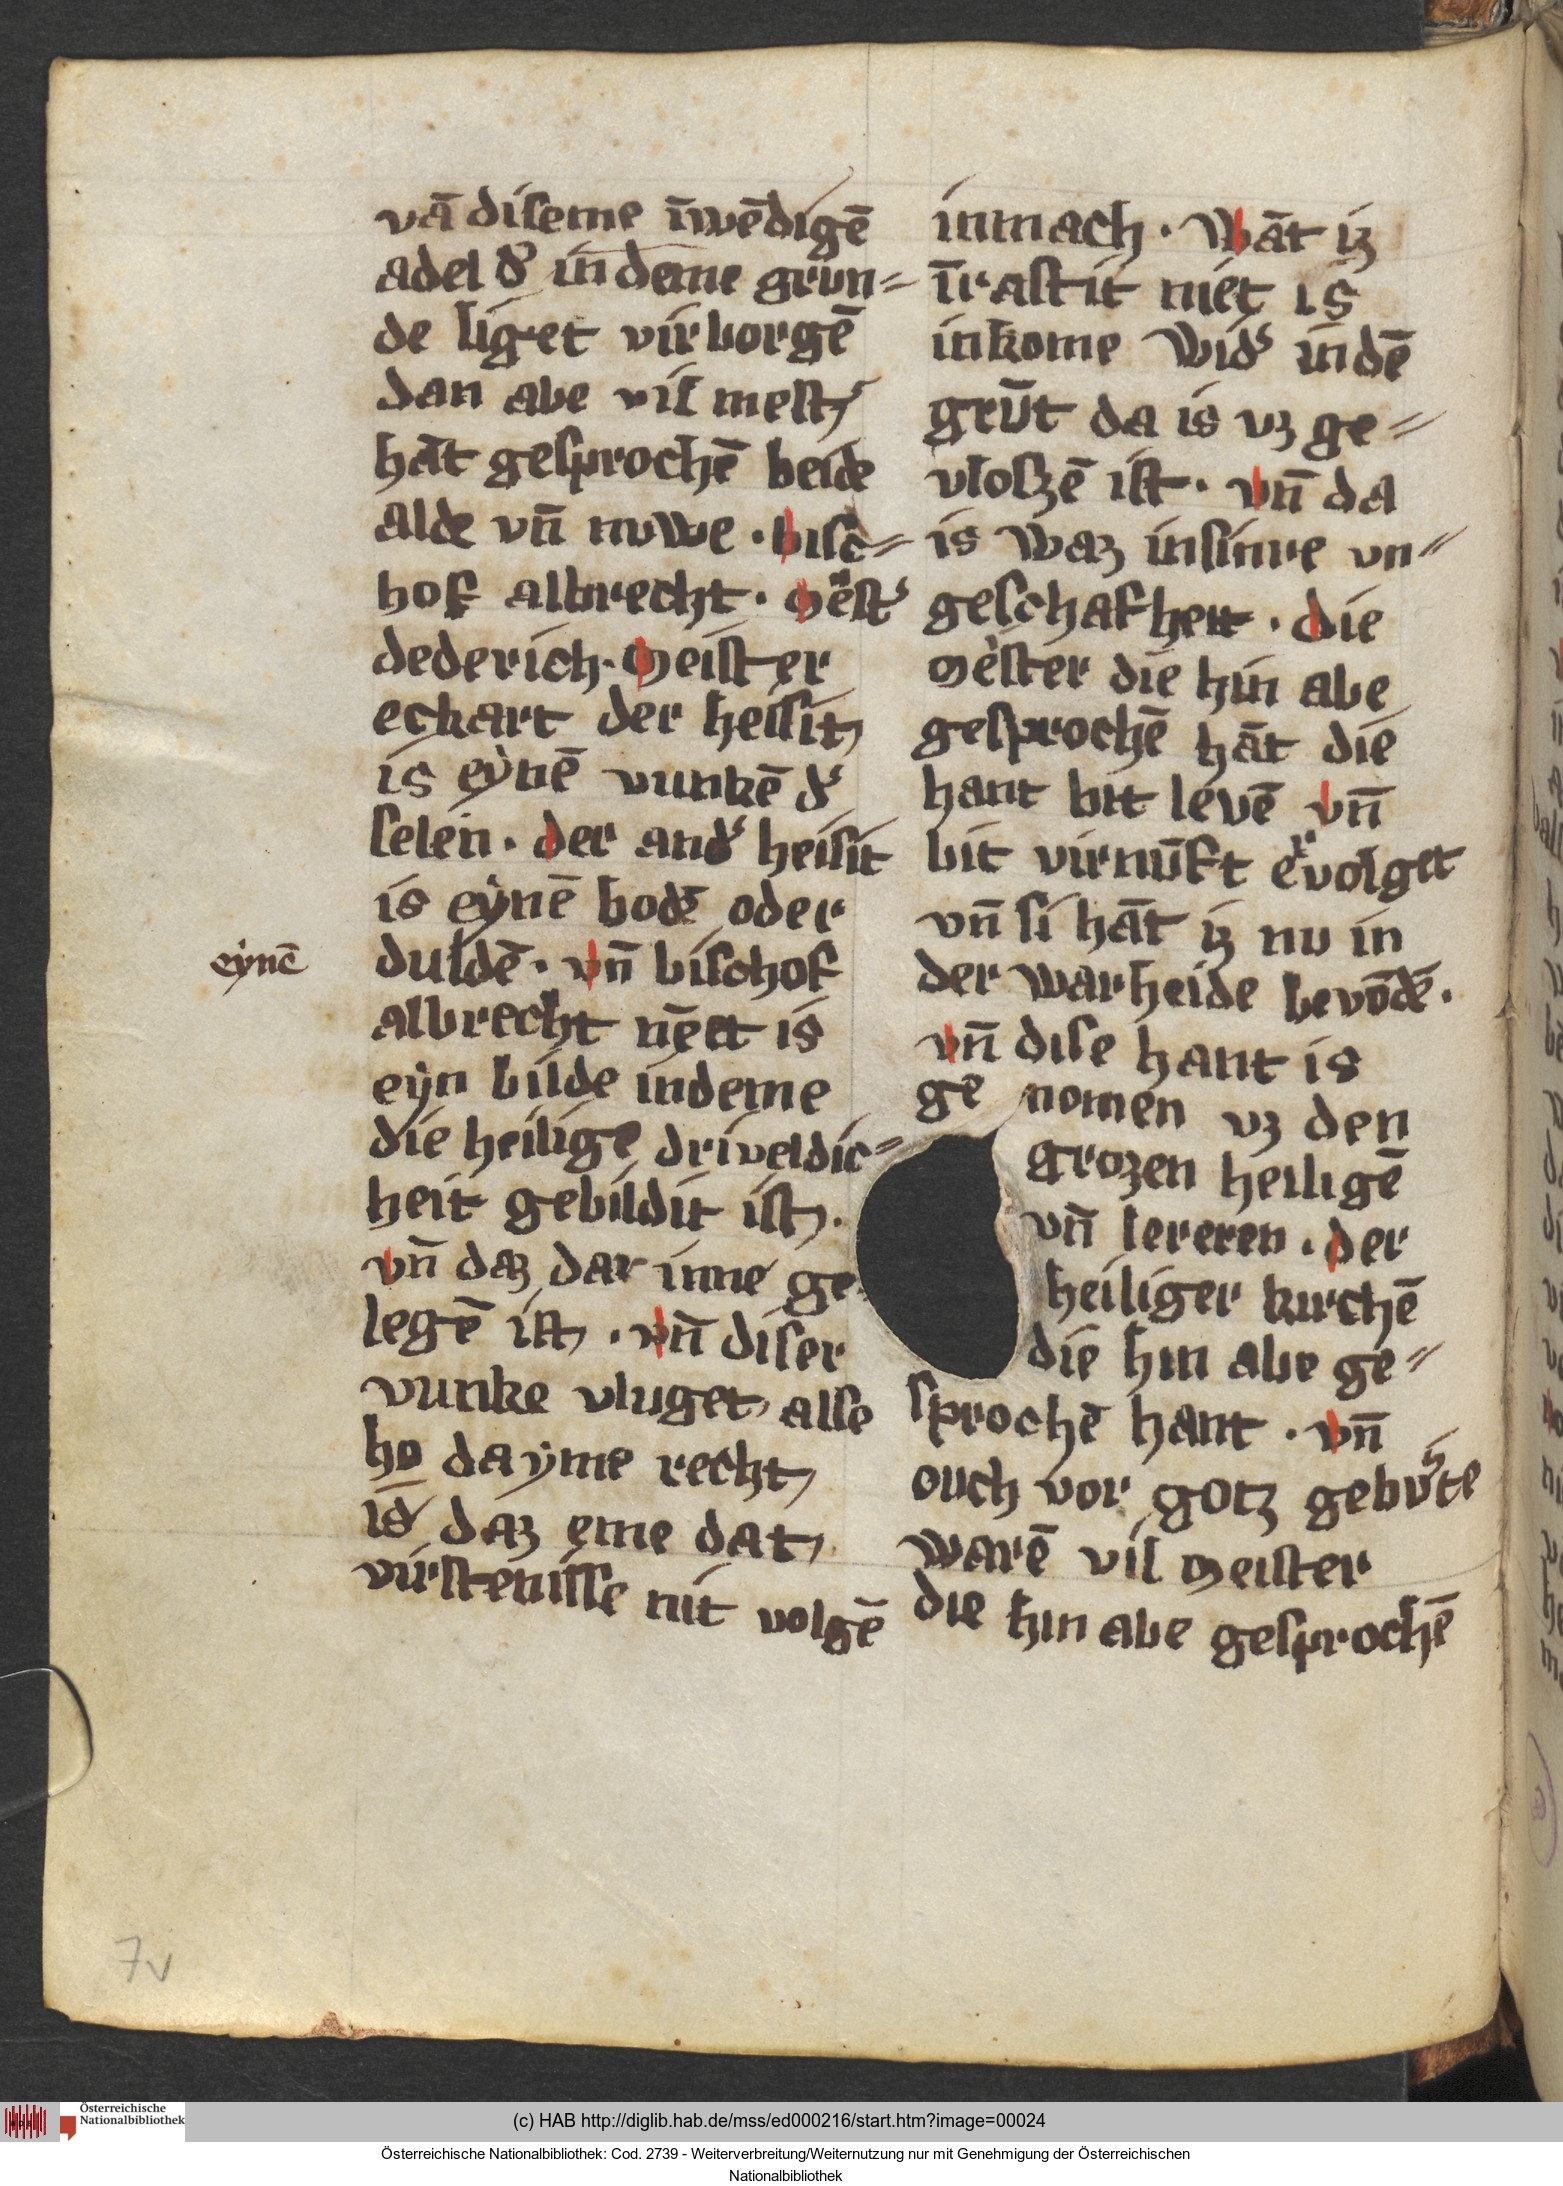 vā diseme īwēdigē
adel d' in deme grun=
de liget virborgē
dan abe vil mest'
hāt gesprochē beide
alde vn̄ nuwe · bisc=
hof albrecht · mēst'
dederich · meister
eckart der heissit
is eẏnē vunkē d'
selen · der and' heisit
is eẏnē bodē oder
eẏnē
duldē · vn̄ bischof
albrecht nēēt is
eẏn bilde indeme
die heilige driveldic=
heit gebildit ist ·
vn̄ daz dar inne ge=
legē ist · vn̄ diser
vunke vluget alse
ho da ẏme recht
is daz eme dat
virstenisse nit volgē
inmach · wāt iz
īrastit niet is
inkome wid' indē
grūt da is vz ge=
vloszē ist · vn̄ da
is waz insinre un=
geschafheit · die
mester die hin abe
gesprochē hāt die
hant bit levē vn̄
bit virnūft ervolget
vn̄ si hāt iz nu in
der warheide bevōdē ·
vn̄ dise hant is
ge nomen vz den
grozen heiligē
vn̄ lereren · der
heiliger kirchē
die hin abe ge=
sprochē hant · vn̄
ouch vor gotz geburte
warē vil meister
die hin abe gesprochē
7v
Österreichische
Nationalbibliothek
(c) HAB http://diglib.hab.de/mss/ed000216/start.htm?image=00024
Österreichische Nationalbibliothek: Cod. 2739 - Weiterverbreitung/Weiternutzung nur mit Genehmigung der Österreichischen
Nationalbibliothek